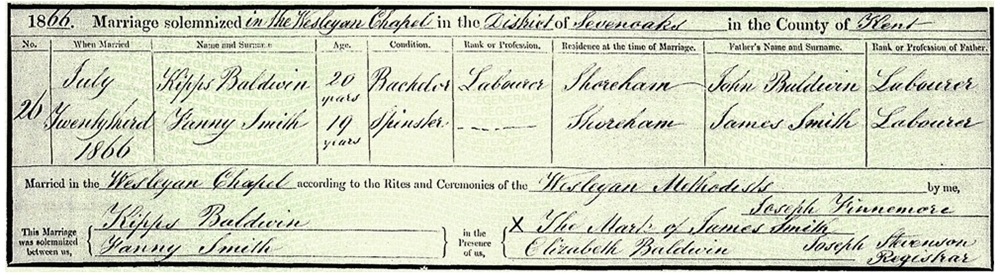 1866. Marriage solemnized in the Wesleyan Chapel in the District of Sevenoaks in the County of Kent
No. When Married Name and Surname Age. Condition. Rank or Profession. Residence at the time of Marriage. Father's Name and Surname. Rank or Profession of Father.
July Kipps Baldwin 20 years Bachelor Labourer Shoreham John Baldwin Labourer
26 Twenty third Fanny Smith 19 years Spinster Shoreham James Smith Labourer
1866
Married in the Wesleyan Chapel according to the Rites and Ceremonies of the Wesleyan Methodists by me,
Joseph Finnemore
This Marriage was solemnized between us, Kipps Baldwin in the Presence of us, X The Mark of James Smith
Fanny Smith Elizabeth Baldwin Joseph Stevenson
Registrar